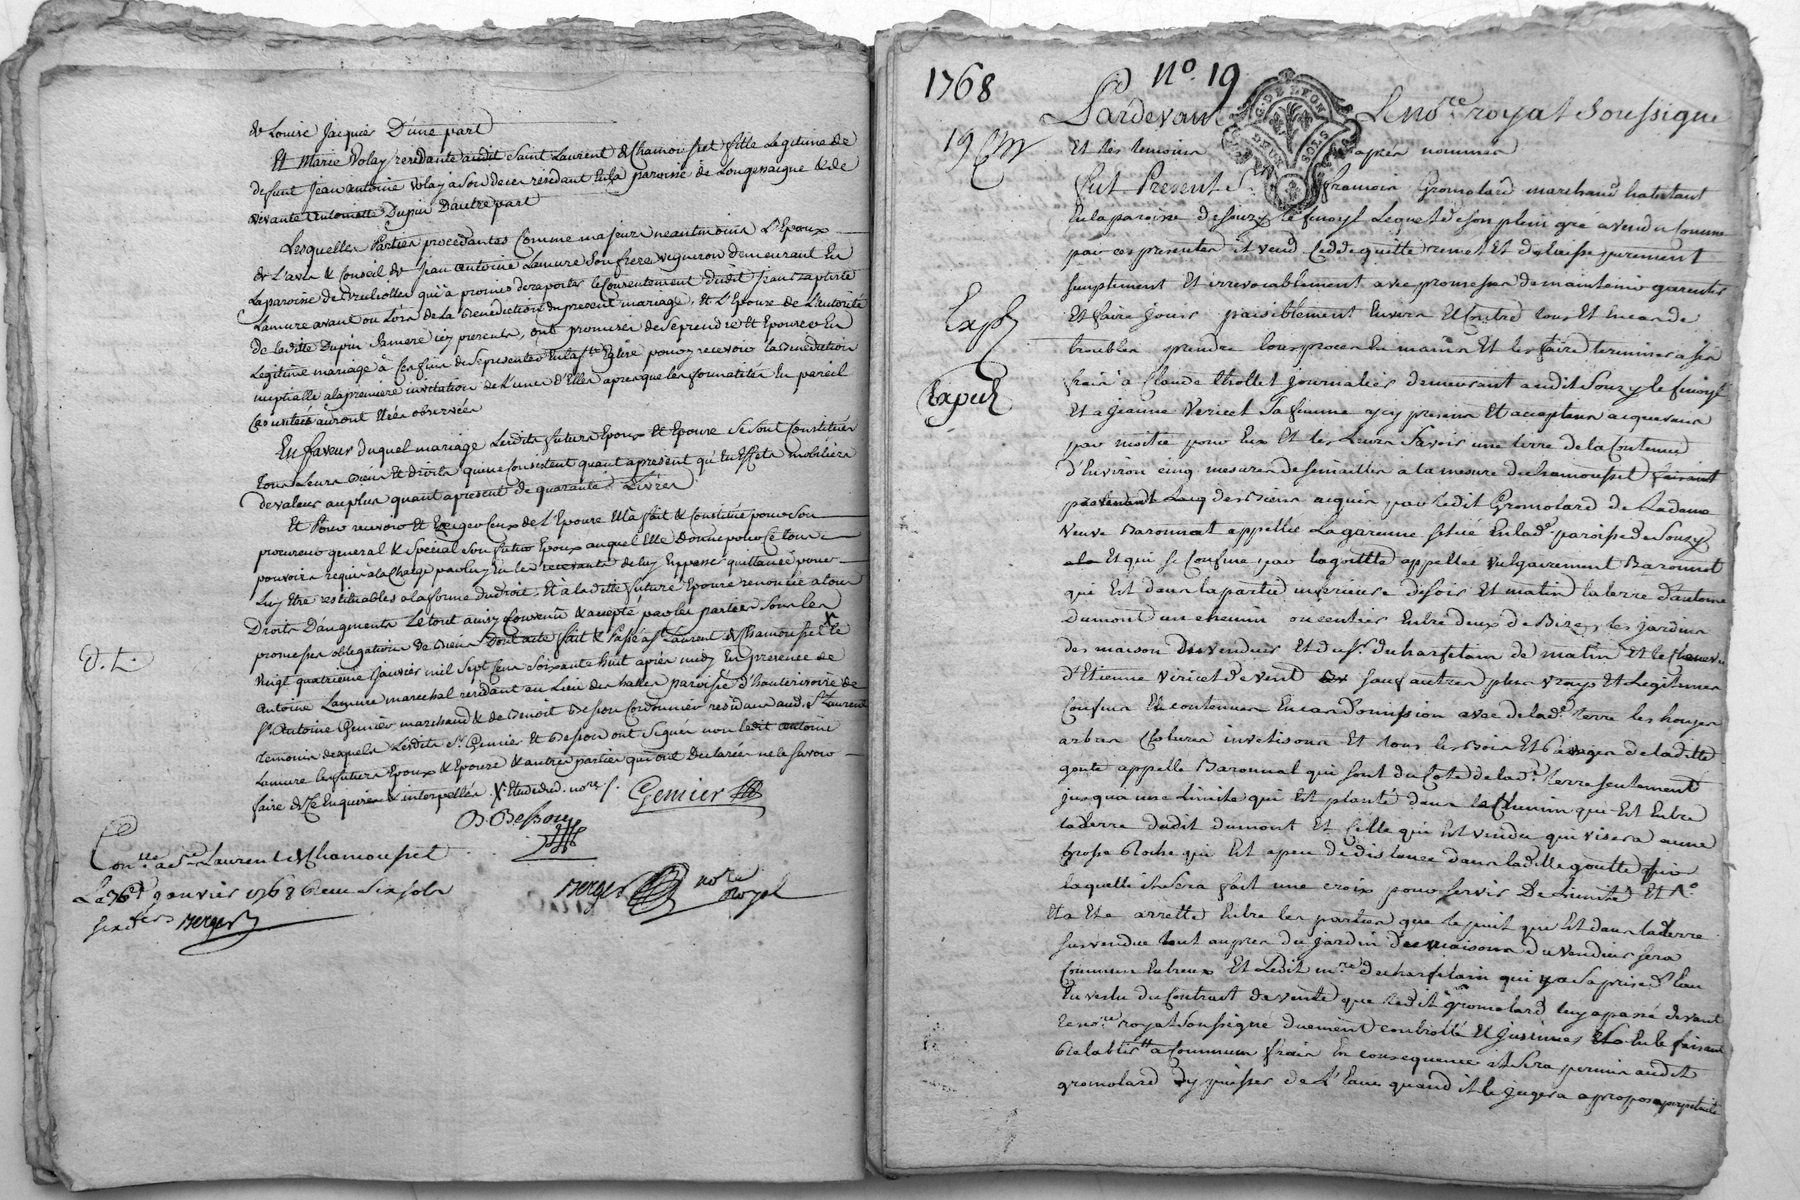 de Louise Jacquier D'une part
Et Marie Volay residante audit Saint Laurent de Chamousset fille Legitime de
defunt Jean antoine Volay a son deces residant en la paroisse de Longessaigne & de
vivante Antoinette Dupin D'autre part
Lesquelles Parties procedantes Comme majeurs neantmoins L'Epoux
de L'avis & Conseil de Jean Antoine Lamure son frere vigneron demeurant En
La paroisse de qui a promis de raporter le Consentement dudit Jean Baptiste
Lamure avant ou Lors de La Benediction du present mariage, Et L'Epouse de L'autorité
de laditte Dupin sa mere icy presente, ont promis de se prendre et Epouser En
Legitime mariage à Ces fins de se presenter En la ste Eglise pour y recevoir la Benediction
nuptialle a la premiere invitation de L'une d'Elles apres que les formalités En pareil
Cas usitées auront Eté observées
En faveur duquel mariage Lesdits futurs Epoux Et Epouse se sont Constitués
tous Leurs Biens Et droits qui ne Consistent quant apresent qu'En Effets mobiliers
de valeur au plus quant apresent de quarante Livres
Et Pour recevoir Et Exiger Ceux de L'Epouse Elle a fait & Constitué pour son
procureur general & special son futur Epoux auquel Elle donne pour Ce tous
pouvoirs requis à la Charge par luy En les recevants de luy En passer quittance pour
Luy Etre restituables a la forme du droit, Et à laditte future Epouse renoncée a tous
Droits D'augments Le tout ainsy Convenu & accepté par les parties sous les
promesses obligations de Biens Dont acte fait & Passé a St Laurent de Chamousset le
vingt quatrieme Janvier mil sept Cens soixante huit après midy En presence de
Antoine Lamure marechal residant au Lieu des halles paroisse d'hauterivoire de
Sr. Antoine Gemier marchand & de Benoit Besson Cordonnier residans aud. St Laurent
temoins desquels Lesdits sr. Gemier Et Besson ont signés non ledit antoine
Lamure les futurs Epoux & Epouse & autres parties qui ont Declarées ne le savoir
faire de Ce Enquises & interpellées. X Gemier
D. L.
B. Besson
Berger nore royal
Conllé a St Laurent de Chamousset
Le 26e janvier 1768 Reçu six sols
six ders Berger
1768 No. 19
Pardevant Le nore royal soussigné
G. DE LYON
DEUX SOLS
19
Et les temoins après nommes
Fut Present Sr. françois Gromolard marchand habitant
En la paroisse de Souzy le Lequel de son plein gré a vendu Comme
par ces presentes il vend Cedde quitte remet Et delaisse purement
simplement Et irrevocablement avec promesses de maintenir garentir
Et faire jouir paisiblement Envers Et Contre tous Et En cas de
troubles prendre tous proces En mains Et les faire terminer a ses
frais a Claude thollet journalier demeurant audit Souzy le
Et a jeanne Vericel sa femme icy presens Et acceptens acquereurs
par moitié pour Eux Et les Leurs Savoir une terre de la Contenue
d'Environ cinq mesures de semailles a la mesure de chamousset faisant
Laq des Biens acquis par ledit Gromolard de Ladame
Veuve Baronnat appellée La garenne située En lad. paroisse de Souzy
Et qui se Confine par la goutte appellée vulgairement Baronnat
qui Est dans la partie inferieure de soir Et matin la terre d'antoine
dumont un chemin ou sentier Entre deux de Bize, les jardins
des maisons du vendeur Et du sr. de matin Et le
d'Etienne Vericel de vent sauf autres plus vrays Et Legitimes
Confins Et contenues En cas d'omission avec de lad. terre les
arbres Clotures investisons Et tous les Bois Et de laditte
goute appelle Baronnat qui sont du Coté de lad. terre seulement
jusqua une Limite qui Est planté dans le Chemin qui Est Entre
la terre dudit dumont Et Celle qui Est vendu qui visera a une
grosse Roche qui Est a peu de distance dans laditte goutte sur
laquelle il sera fait une croix pour servir De Limite Et
Eté arretté Entre les parties que le puit qui Est dans la terre
susvendue tout aupres du jardin des maisons du vendeur sera
Commun Entreux Et Ledit mre. qui y a sa prise d'eau
En vertu du Contract de vente que ledit Gromolard luy a passé devant
le nore. royal soussigné duement controllé Et insinué
a Communs frais En consequence il sera permis audit
gromolard d'y puiser de L'Eau quand il le jugera a propos a perpetuité